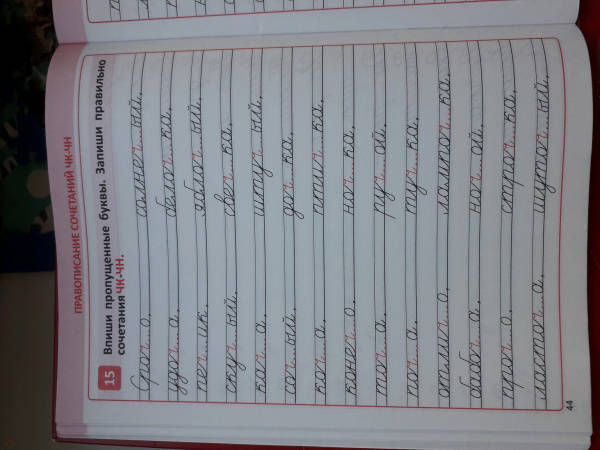 ПРАВОПИСАНИЕ СОЧЕТАНИЙ ЧК-ЧН
15 Впиши пропущенные буквы. Запиши правильно
сочетания ЧК-ЧН.
Сроч...о. солнеч...ый.
удоч...а. белоч...ка.
печ...ик. яблоч...ый.
скуч...ый. свеч...ка.
кач...а. штуч...ый.
соч...ый. доч...ка.
коч...а. птич...ка.
конеч...о. ноч...ка.
точ...а. руч...ой.
пач...а. туч...ка.
отлич...о. лампоч...ка.
бабоч...а. ноч...ой.
проч...о. строч...ка.
ласточ...а. шуточ...ый.
44